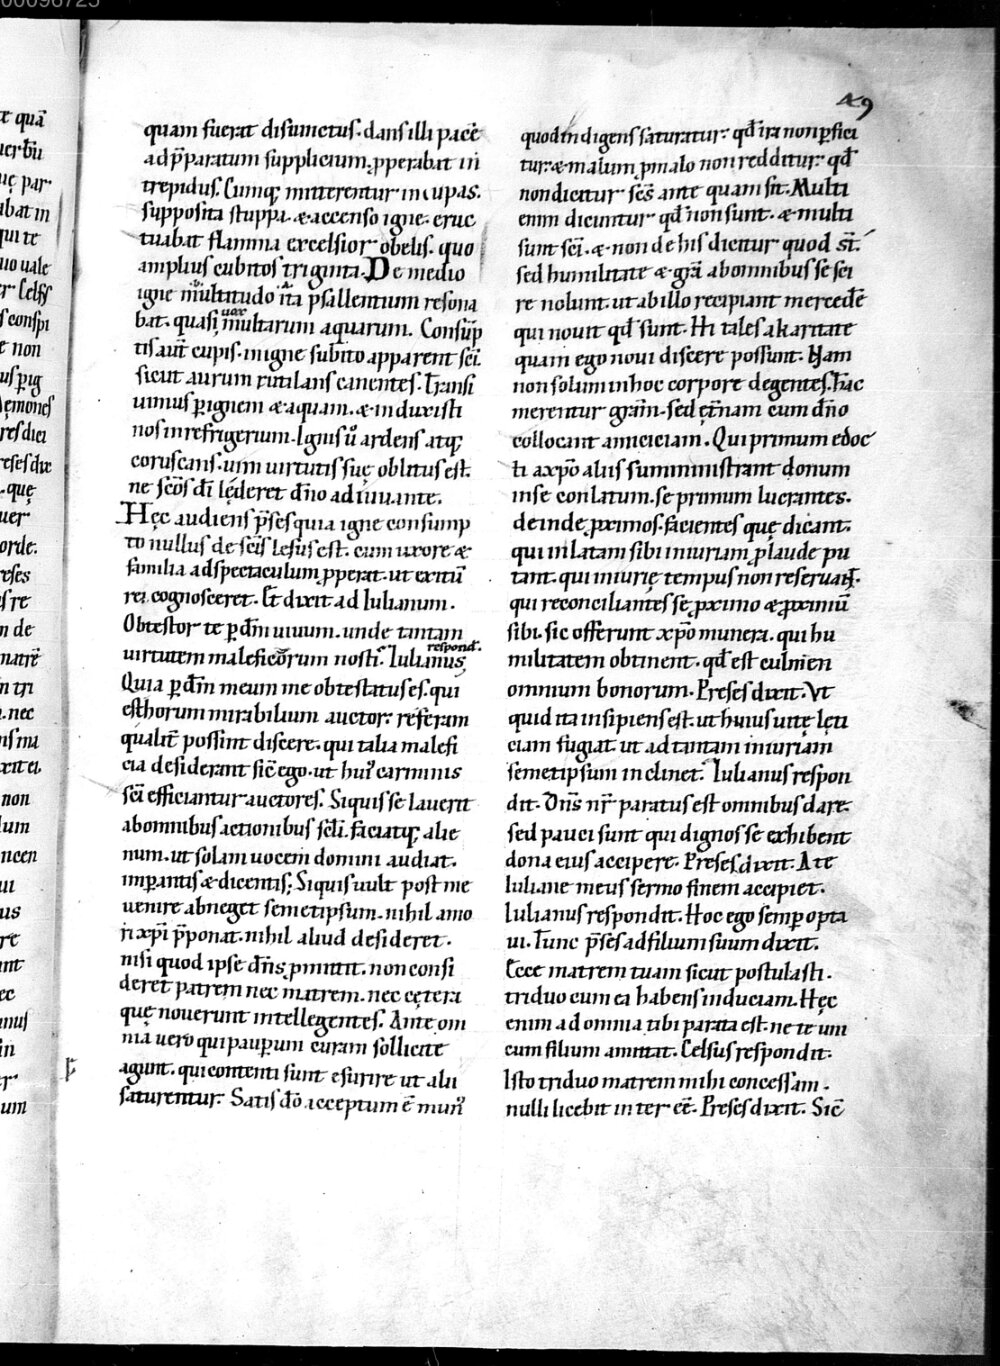 00098725
49
quam fuerat disiunctus. dans illi pacē
ad p̄paratum supplicium. ꝓperabat in
trepidus. Cumq; mitterentur in cupas.
supposita stuppa. & accenso igne. eruc
tuabat flamma excelsior obelis. quo
amplius cubitos triginta. De medio
igne multitudo ita psallentium resona
bat. quasi uox multarum aquarum. Consūp
tis aut̄ cupis. in igne subito apparent sc̄i.
sicut aurum rutilans canentes. Transi
uimus ꝑ ignem & aquam. & induxisti
nos in refrigerium. Ignis ū ardens atq;
coruscans. uim uirtutis suę oblitus est.
ne sc̄os dī lęderet dn̄o adiuuante.
Hęc audiens p̄ses quia igne consump
to nullus de sc̄is lesus est. cum uxore &
familia ad spectaculum ꝓperat. ut exitū
rei cognosceret. Et dixit ad Iulianum.
Obtestor te ꝑ dm̄ uiuum. unde tantam
uirtutem maleficiorum nosti. Iulianus respond.
Quia ꝑ dm̄ meum me obtestatus es. qui
est horum mirabilium auctor. referam
qualit̄ possint discere. qui talia malefi
cia desiderant sic̄ ego. ut hui' carminis
sc̄i efficiantur auctores. Si quis se lauerit
ab omnibus actionibus scl̄i. faciatq; alie
num. ut solam uocem domini audiat.
imꝑantis & dicentis; Si quis uult post me
uenire abneget semetipsum. nihil amo
ri xp̄i p̄ponat. nihil aliud desideret.
nisi quod ipse dn̄s ꝓmittit. non consi
deret patrem nec matrem. nec cętera
quę nouerunt intellegentes. Ante om
nia uero qui pauꝑum curam sollicite
agunt. qui contenti sunt esurire ut alii
saturentur. Satis do acceptum ē mun'
quod indigens saturatur. qd̄ ira non ꝑfici
tur. & malum ꝓ malo non redditur. qd̄
non dicitur sc̄s ante quam sit. Multi
enim dicuntur qd̄ non sunt. & multi
sunt sc̄i. & non de his dicitur quod st̄.
sed humilitate & grā ab omnibus se sci
re nolunt. ut ab illo recipiant mercedē
qui nouit qd̄ sunt. Hi tales a karitate
quam ego noui discere possunt. Nam
non solum in hoc corpore degentes. hac
merentur grām. sed et̄nam cum dn̄o
collocant amiciciam. Qui primum edoc
ti a xp̄o aliis sumministrant donum
in se conlatum. se primum lucrantes.
deinde ꝓximos. facientes quę dicant.
qui inlatam sibi iniuriam ꝓ laude pu
tant. qui iniurię tempus non reseruant.
qui reconciliantes se ꝓximo & ꝓximū
sibi. sic offerunt xp̄o munera. qui hu
militatem obtinent. qd̄ est culmen
omnium bonorum. Preses dixit. Ut
quid ita insipiens est. ut huius uitę lęti
ciam fugiat ut ad tantam iniuriam
semetipsum inclinet. Iulianus respon
dit. Dn̄s nr̄ paratus est omnibus dare.
sed pauci sunt qui dignos se exhibent
dona eius accipere. Preses dixit. A te
Iuliane meus sermo finem accipiet.
Iulianus respondit. Hoc ego semꝑ opta
ui. Tunc p̄ses ad filium suum dixit.
Ecce matrem tuam sicut postulasti.
triduo cum ea habens induciam. Hęc
enim ad omnia tibi parata est. ne te uni
cum filium amittat. Celsus respondit.
Isto triduo matrem mihi concessam.
nulli licebit inter ee̅. Preses dixit. Sic̄